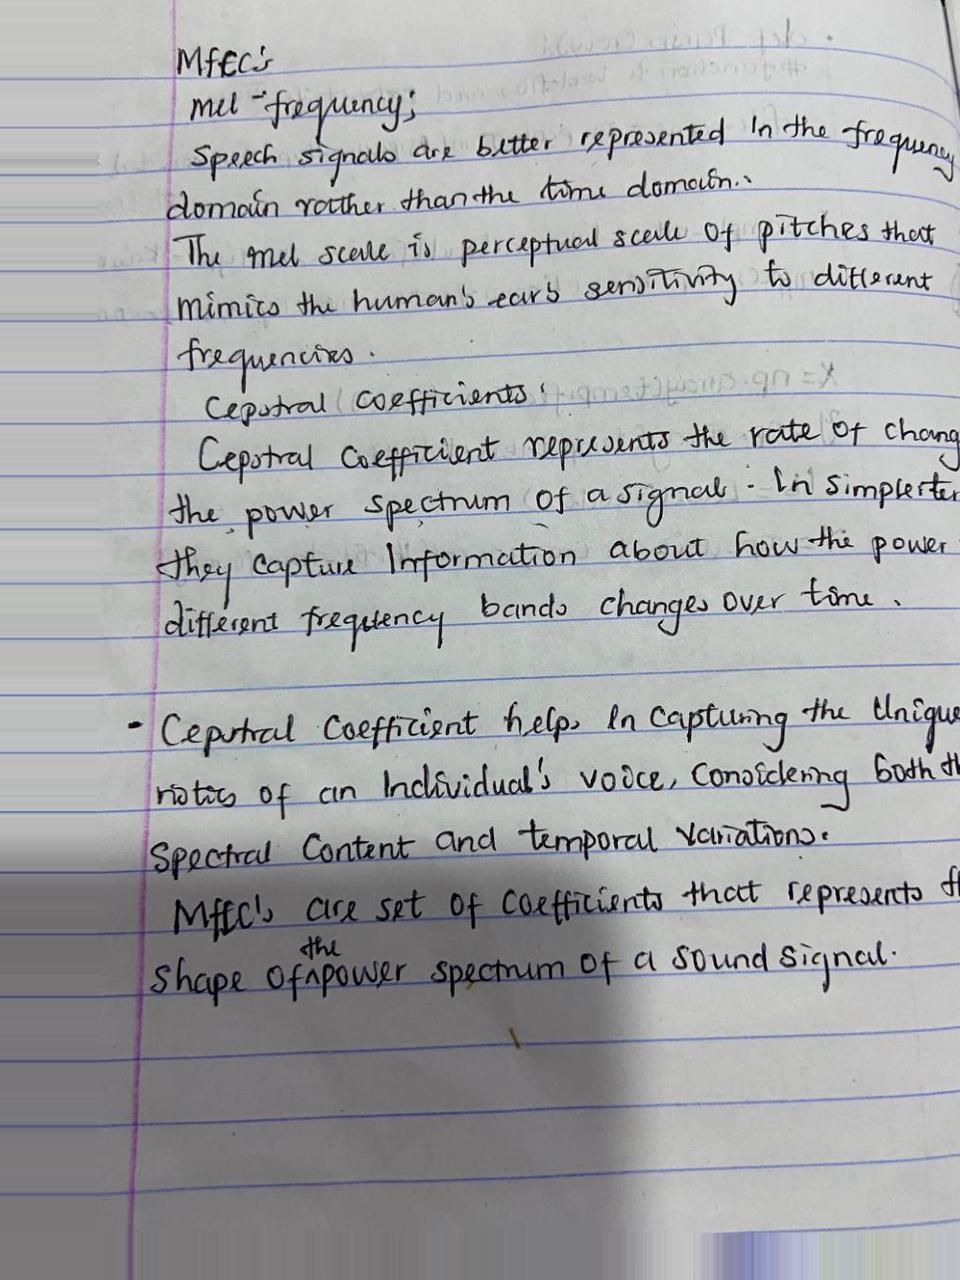 MFCC's
mel-frequency;
Speech signals are better represented In the frequency
domain rather than the time domain.
The mel scale is perceptual scale of pitches that
mimics the human's ear's sensitivity to different
frequencies.
Cepstral Coefficients:
Cepstral Coefficient represents the rate of chang
the power spectrum of a signal. In simpler ter
they capture Information about how the power
different frequtency bands changes over time.
- Cepstral Coefficient helps In Capturing the Unique
ristics of an Individual's voice, Considering both th
Spectral Content and temporal variations.
MFCC's are set of coefficients that represents th
shape of ^ the power spectrum of a sound signal.